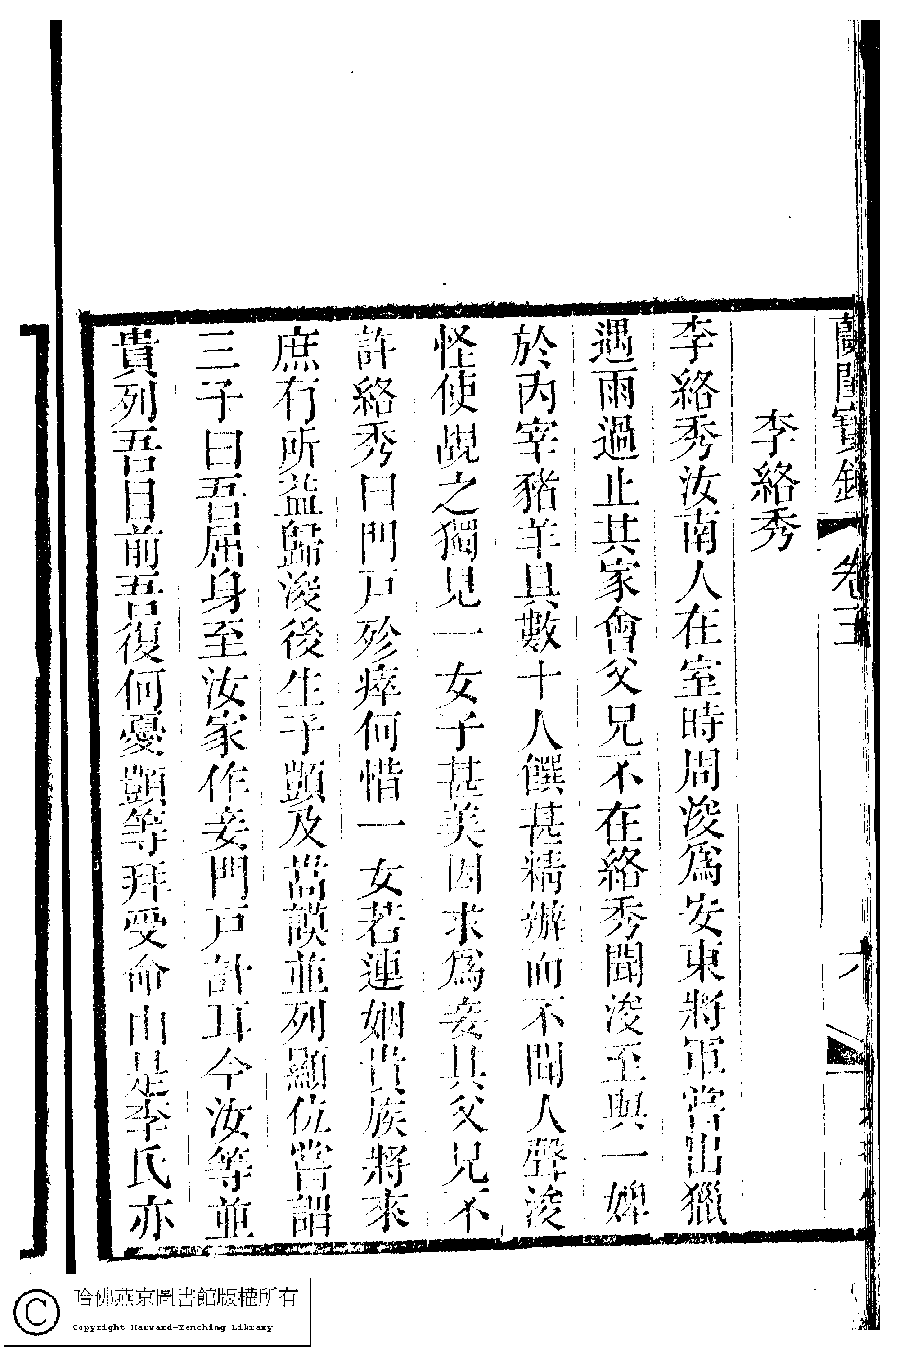 蘭閨寶錄 卷三 六
李絡秀
李絡秀汝南人在室時周浚爲安東將軍嘗出獵
遇雨過止其家會父兄不在絡秀聞浚至與一婢
於內宰豬羊具數十人饌甚精辦而不聞人聲浚
怪使覘之獨見一女子甚美因求爲妾其父兄不
許絡秀曰門戶殄瘁何惜一女若連姻貴族將來
庶有所益歸浚後生子顗及嵩謨並列顯位嘗謂
三子曰吾屈身至汝家作妾門戶計耳今汝等並
貴列吾目前吾復何憂顗等拜受命由是李氏亦
哈佛燕京圖書館版權所有
Copyright Harvard-Yenching Library